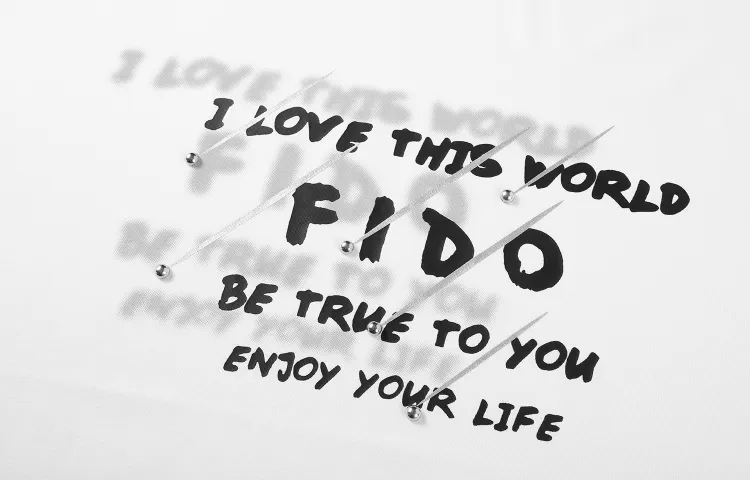 I LOVE THIS WORLD
FIDO
BE TRUE TO YOU
ENJOY YOUR LIFE